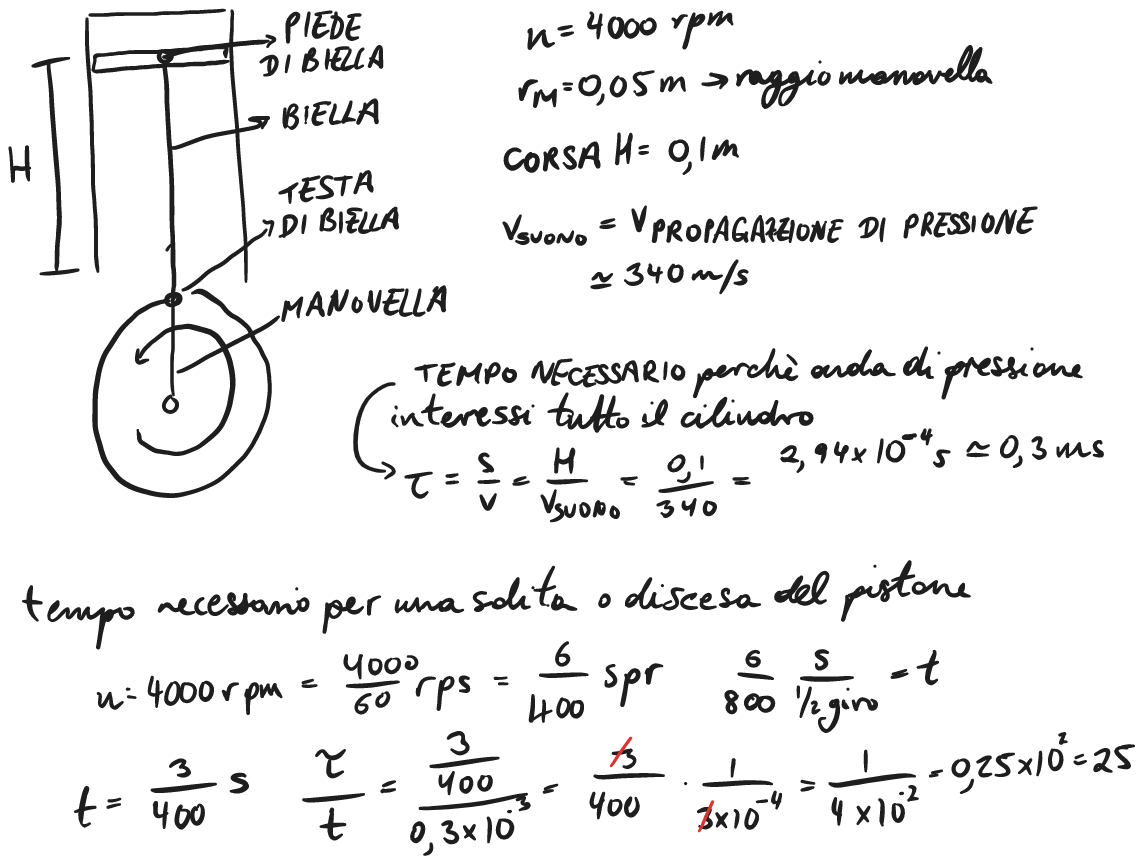 PIEDE
DI BIELLA
BIELLA
H
TESTA
DI BIELLA
MANOVELLA
n = 4000 rpm
r_M = 0,05 m → raggio manovella
CORSA H = 0,1 m
V_SUONO = V_PROPAGAZIONE DI PRESSIONE
≃ 340 m/s
TEMPO NECESSARIO perchè onda di pressione
interessi tutto il cilindro
τ = s/v = H/V_SUONO = 0,1/340 = 2,94 x 10^-4 s ≃ 0,3 ms
tempo necessario per una salita o discesa del pistone
n = 4000 rpm = 4000/60 rps = 6/400 spr 6/800 s/(1/2 giro) = t
t = 3/400 s τ/t = (3/400)/(0,3 x 10^-3) = 3/400 · 1/(3 x 10^-4) = 1/(4 x 10^-2) = 0,25 x 10^2 = 25